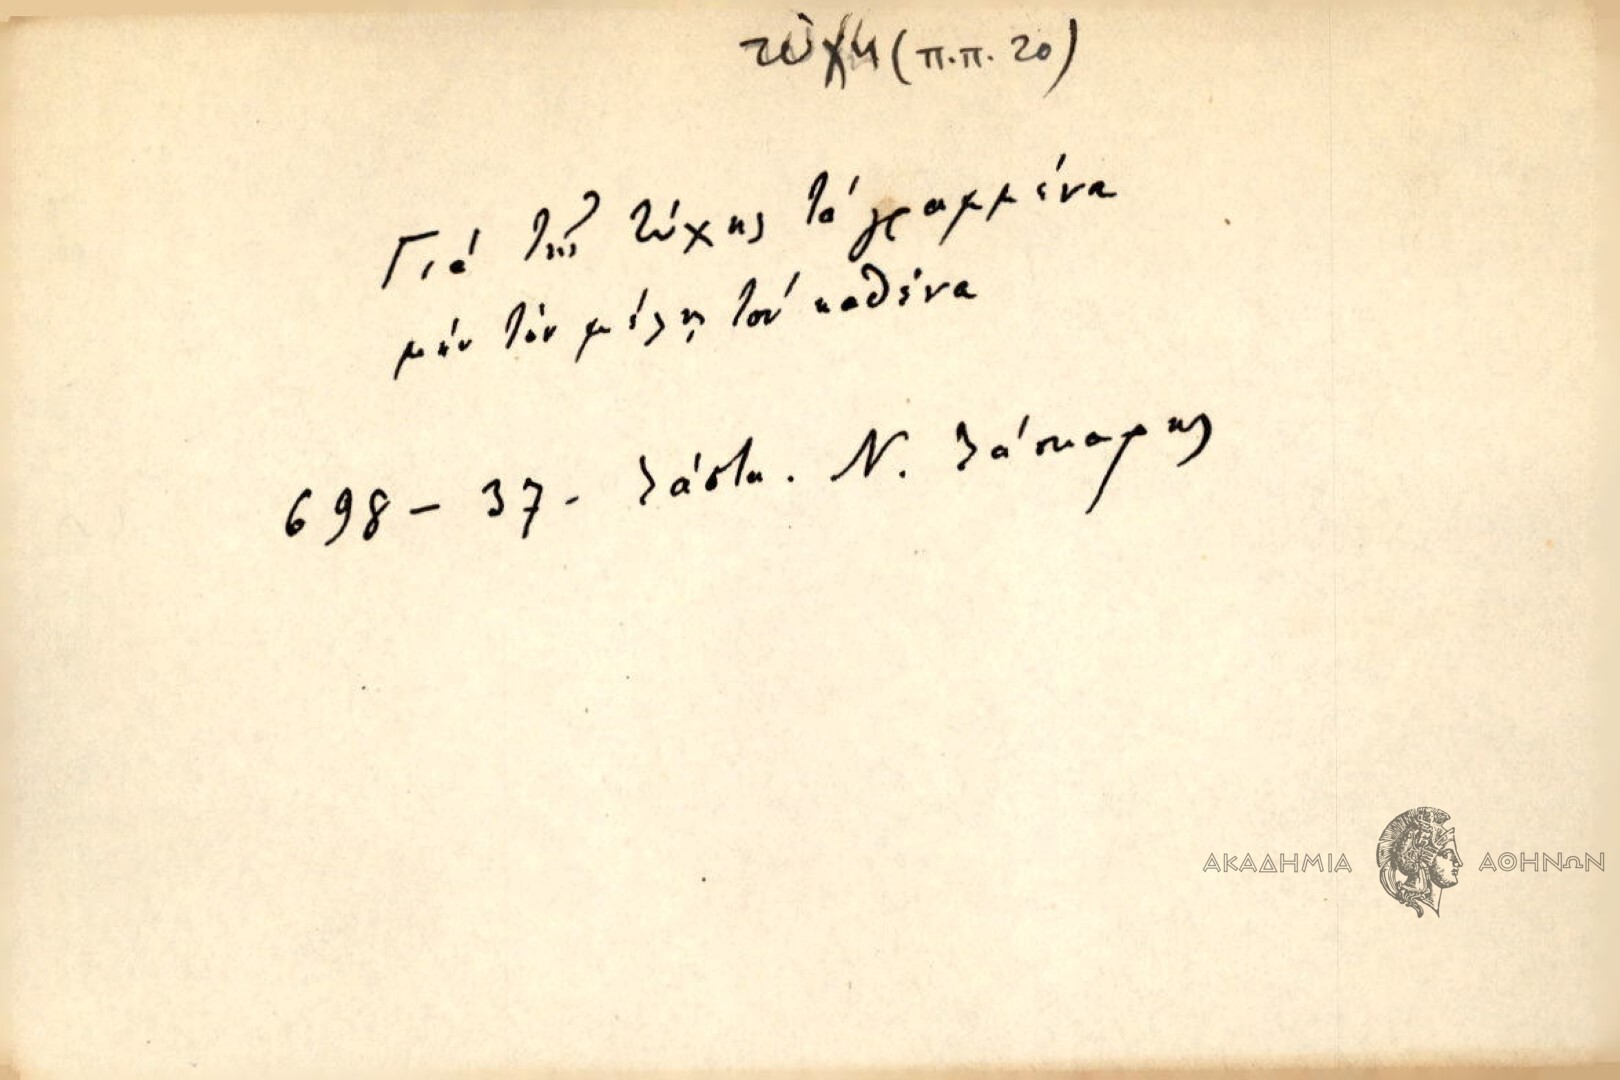 τύχη (π.π. 20)
Γιά τῆς τύχης τά γραμμένα
μήν τόν μέλῃ τόν καθένα
698 - 37 - Λάστα. Ν. Λάσκαρης
ΑΚΑΔΗΜΙΑ ΑΘΗΝΩΝ